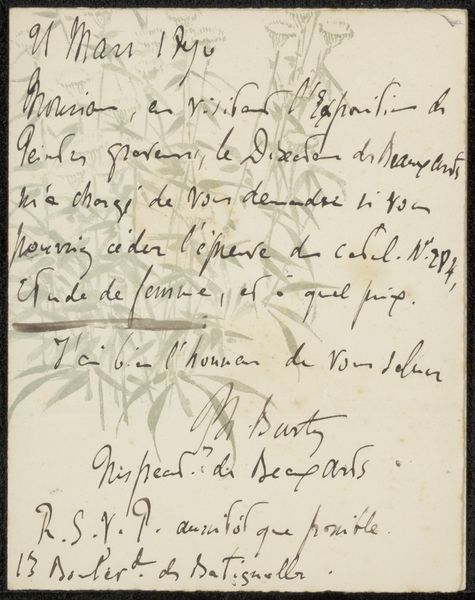 21 Mars 1890
Monsieur, en visitant l'Exposition de
Peintres graveurs, le Directeur des Beaux arts
m'a chargé de vous demander si vous
pourriez céder l'épreuve du catal. N° 284,
Etude de femme, et à quel prix.
J'ai bien l'honneur de vous saluer
Ph. Burty
Inspecteur des Beaux arts.
R. S. V. P. aussitôt que possible.
13 Boulevd. des Batignolles.